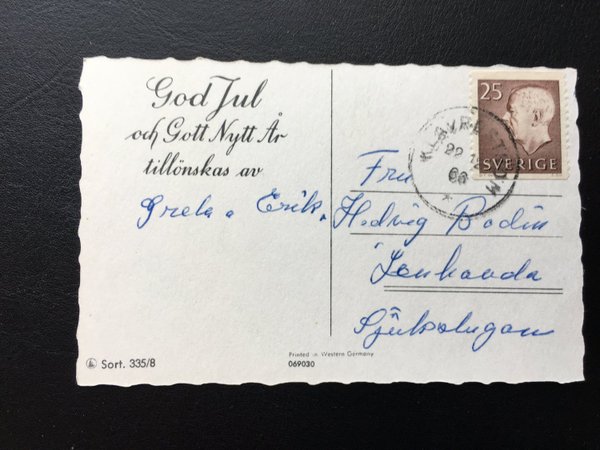 God Jul
och Gott Nytt År
tillönskas av
Greta o Erik.
25
SVERIGE
KLAVRESTRÖM
22 12
66
Fru
Hedvig Bodin
Lenhovda
Sjukstugan
Sort. 335/8
Printed in Western Germany
069030